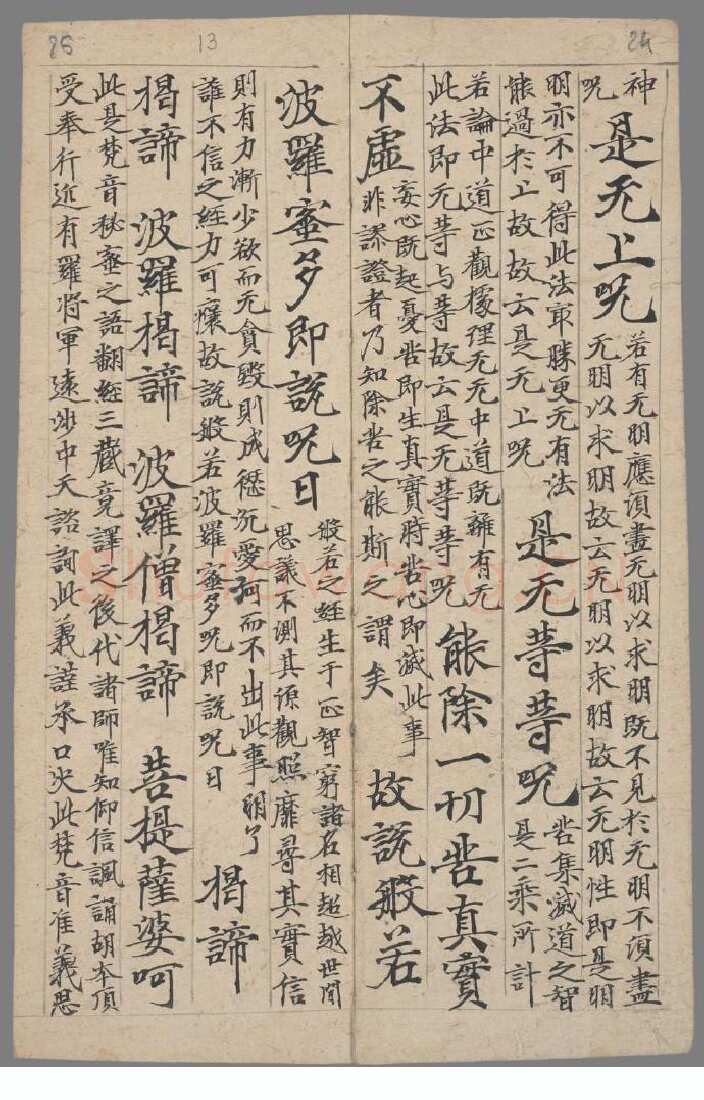 24
13
25
神
呪
是无上呪
若有无明應須盡无明以求明既不見於无明不須盡
无明以求明故云无明以求明故云无明性即是明
明亦不可得此法取勝更无有法
能過於上故故云是无上呪
是无等等呪
苦集滅道之智
是二乘所計
若論中道正觀據理无无中道既離有无
此法即无等与等故云是无等等呪
能除一切苦真實
不虛
妄心既起憂苦即生真實時苦心即滅此事
非謬證者乃知除苦之能斯之謂矣
故說般若
波羅蜜多即說呪曰
般若之經生于正智窮諸名相超越世間
思議不測其源觀照靡尋其實信
則有力漸少欲而无貪毀則成愆沉愛河而不出此事明了
誰不信之經力可攘故說般若波羅蜜多呪即說呪曰
揭諦
揭諦 波羅揭諦 波羅僧揭諦 菩提薩婆呵
此是梵音秘蜜之語翻經三藏竟譯之後代諸師唯知仰信諷誦胡本頂
受奉行近有羅將軍遠涉中天諮詢此義謹承口决此梵音准義思